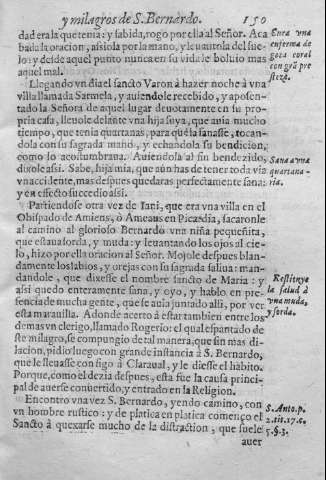 y milagros de S. Bernardo. 150
dad era la que tenia: y sabida, rogo por ella al Señor. Aca
bada la oracion, asiola por la mano, y leuantola del sue-
lo: y desde aquel punto nunca en su vida le boluio mas
aquel mal.
Cura vna
enferma de
gota coral
con grā pre
steza.
Llegando vn dia el sancto Varon à hazer noche à vna
villa llamada Sarmela, y auiendole recebido, y aposen-
tado la Señora de aquel lugar deuotamente en su pro-
pria casa, lleuole delante vna hija suya, que auia mucho
tiempo, que tenia quartanas, para q̃ la sanasse, tocan-
dola con su sagrada mano, y echandola su bendicion,
como lo acostumbraua. Auiendola al fin bendezido,
dixole assi. Sabe, hija mia, que aún has de tener toda via
vn accidente, mas despues quedaras perfectamente sana:
y en effecto succedio assi.
Sana a vna
quartana-
ria.
Partiendose otra vez de Iani, que era vna villa en el
Obispado de Amiens, ò Ameaus en Picardia, sacaronle
al camino al glorioso Bernardo vna niña pequeñita,
que estaua sorda, y muda: y leuantando los ojos al cie-
lo, hizo por ella oracion al Señor. Mojole despues blan-
damente los labios, y orejas con su sagrada saliua: man-
dandole, que dixesse el nombre sancto de Maria: y
assi quedo enteramente sana, y oyo, y hablo en pre-
sencia de mucha gente, que se auia juntado alli, por ver
esta marauilla. Adonde acerto à estar tambien entre los
demas vn clerigo, llamado Rogerio: el qual espantado de
ste milagro, se compungio de tal manera, que sin mas di-
lacion, pidio luego con grande instancia à S. Bernardo,
que le lleuasse con sigo à Claraual, y le diesse el habito.
Porque, como el dezia despues, esta fue la causa princi-
pal de auerse conuertido, y entrado en la Religion.
Restituye
la salud à
vna muda,
y sorda.
Encontro vna vez S. Bernardo, yendo camino, con
vn hombre rustico: y de platica en platica començo el
Sancto à quexarse mucho de la distraction, que suele
S. Anto. p.
2. tit. 17. c.
5. §. 3.
auer